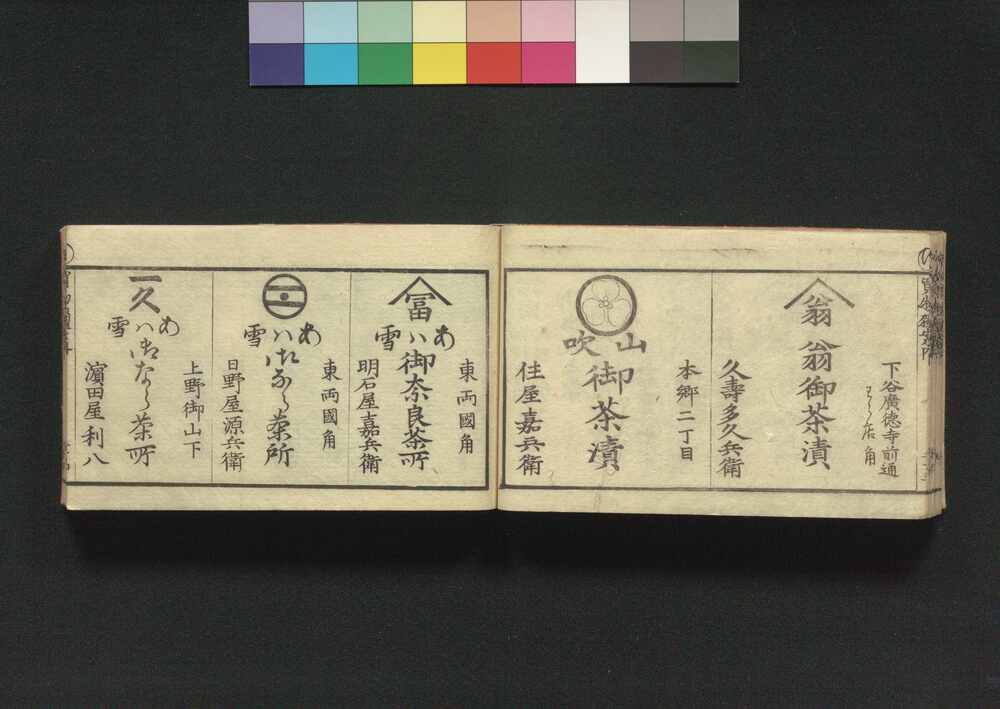 下谷廣徳寺前通
角
翁
翁御茶漬
久壽多久兵衛
本郷二丁目
山吹
御茶漬
住屋嘉兵衛
東両國角
冨
あハ雪
御奈良茶所
明石屋嘉兵衛
東両國角
あハ雪
御なら茶所
日野屋源兵衛
上野御山下
一久
あハ雪
御なら茶所
濵田屋利八